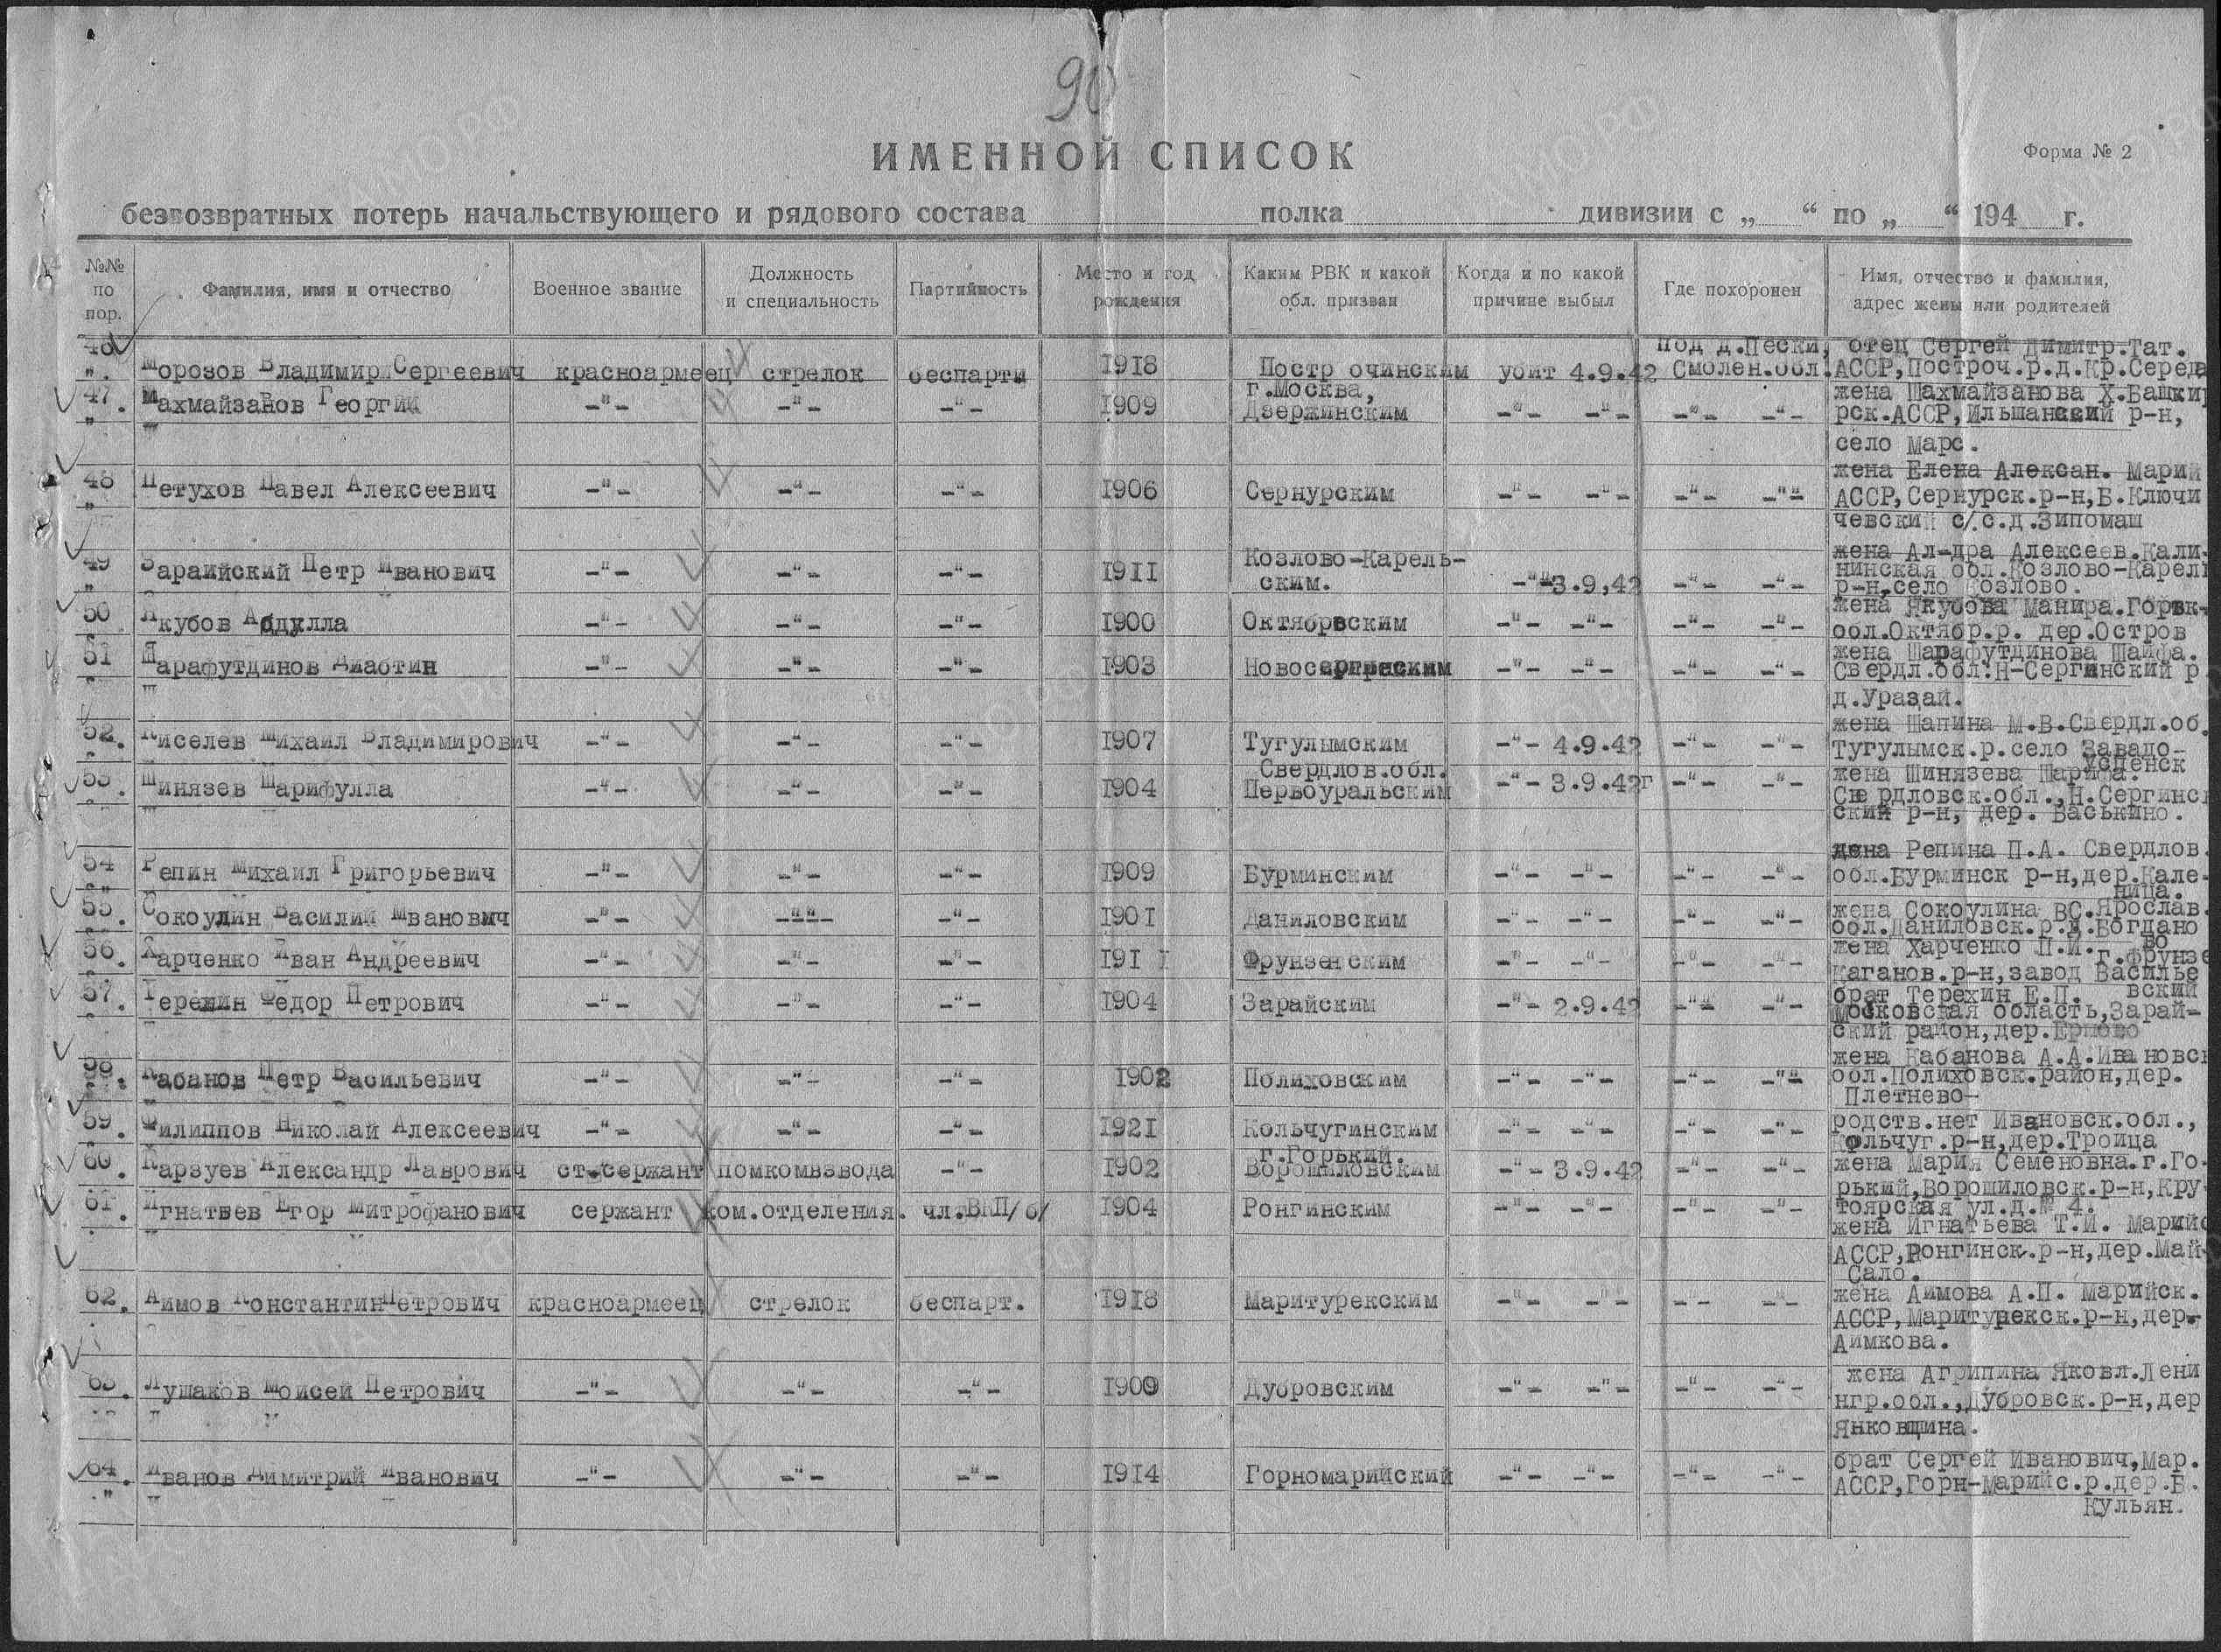 90
ИМЕННОЙ СПИСОК
Форма № 2
безвозвратных потерь начальствующего и рядового состава полка дивизии с „ “ по „ “ 194 г.
№№ по пор. Фамилия, имя и отчество Военное звание Должность и специальность Партийность Место и год рождения Каким РВК и какой обл. призван Когда и по какой причине выбыл Где похоронен Имя, отчество и фамилия, адрес жены или родителей
под д.Пески, отец Сергей Димитр.Тат.
46 Морозов Владимир Сергеевич красноармеец стрелок беспарти 1918 Постр очинским убит 4.9.42 Смолен.обл. АССР,Построч.р.д.Кр.Середа
г.Москва, жена Шахмайзанова Х.Башки
47. Махмайзанов Георгий -"- -"- -"- 1909 Дзержинским -"- -"- -"- -"- рск.АССР,Ильшанский р-н,
село Марс.
жена Елена Алексан. Марий
48 Петухов Павел Алексеевич -"- -"- -"- 1906 Сернурским -"- -"- -"- -""- АССР,Сернурск.р-н,Б.Ключи
чевский с/.с.д.Зипомаш
Козлово-Карель- жена Ал-дра Алексеев.Кали-
49 Зараийский Петр Иванович -"- -"- -"- 1911 ским. -"-3.9,42 -"- -"- нинская обл.Козлово-Карель
р-н,село Козлово.
жена Якубова Манира.Горвк-
50 Якубов Абдулла -"- -"- -"- 1900 Октябрвским -"- -"- -"- -"- обл.Октябр.р. дер.Остров
жена Шарафутдинова Шайфа.
51 Шарафутдинов Диаотин -"- -"- -"- 1903 Новосергинским -"- -"- -"- -"- Свердл.обл.Н-Сергинский р
д.Уразай.
жена Шапина М.В.Свердл.об.
52. Киселев Михаил Владимирович -"- -"- -"- 1907 Тугулымским -"- 4.9.42 -"- -"- Тугулымск.р.село Завадо-
успенск
Свердлов.обл. жена Шинязева Шарифа.
53. Шинязев Шарифулла -"- -"- -"- 1904 Первоуральским -"- 3.9.42г -"- -"- Свердловск.обл.,Н.Сергинс
ский р-н, дер. Васькино.
жена Репина П.А. Свердлов.
54 Репин Михаил Григорьевич -"- -"- -"- 1909 Бурминским -"- -"- -"- -"- обл.Бурминск р-н,дер.Кале-
ница.
жена Сокоулина ВС.Ярослав.
55. Сокоулин Василий Иванович -"- -""- -"- 1901 Даниловским -"- -"- -"- -"- обл.Даниловск.р.д.Богдано
во
жена Харченко П.И. г.Фрунзе
56. Харченко Иван Андреевич -"- -"- -"- 1911 Фрунзенским -"- -"- -"- -"- Каганов.р-н,завод Василье
вский
брат Терехин Е.П.
57. Терехин Федор Петрович -"- -"- -"- 1904 Зарайским -"- 2.9.42 -"- -"- Московская область,Зарай-
ский район,дер.
жена Кабанова А.А.Ивановск
58. Кабанов Петр Васильевич -"- -"- -"- 1902 Полиховским -"- -"- -"- -""- обл.Полиховск.район,дер.
Плетнево-
59. Филиппов Николай Алексеевич -"- -"- -"- 1921 Кольчугинским -"- -"- -"- -"- родств.нет Ивановск.обл.,
Кольчуг.р-н,дер.Троица
г.Горький.
60. Карзуев Александр Лаврович ст.сержант помкомвзвода -"- 1902 Ворошиловским -"- 3.9.42 -"- -"- жена Мария Семеновна.г.Го-
рький,Ворошиловск.р-н,Кру-
61. Игнатьев Егор Митрофанович сержант ком.отделения. чл.ВКП/б/ 1904 Ронгинским -"- -"- -"- -"- тоярская ул.д.№ 4.
жена Игнатьева Т.И. Марийс
АССР,Ронгинск.р-н,дер.Май-
Сало.
62. Аимов Константин Петрович красноармеец стрелок беспарт. 1918 Маритурекским -"- -"- -- -- жена Аимова А.П. Марийск.
АССР,Маритурекск.р-н,дер.
Аимкова.
жена Агрипина Яковл.Лени
63. Лушаков Моисей Петрович -"- -"- -"- 1900 Дубровским -"- -"- -"- -"- нгр.обл.,Дубровск.р-н,дер
Янковщина.
брат Сергей Иванович,Мар.
64. Иванов Димитрий Иванович -"- -"- -"- 1914 Горномарийский -"- -"- -"- -"- АССР,Горн-Марийс.р.дер.Б.
Кульян.